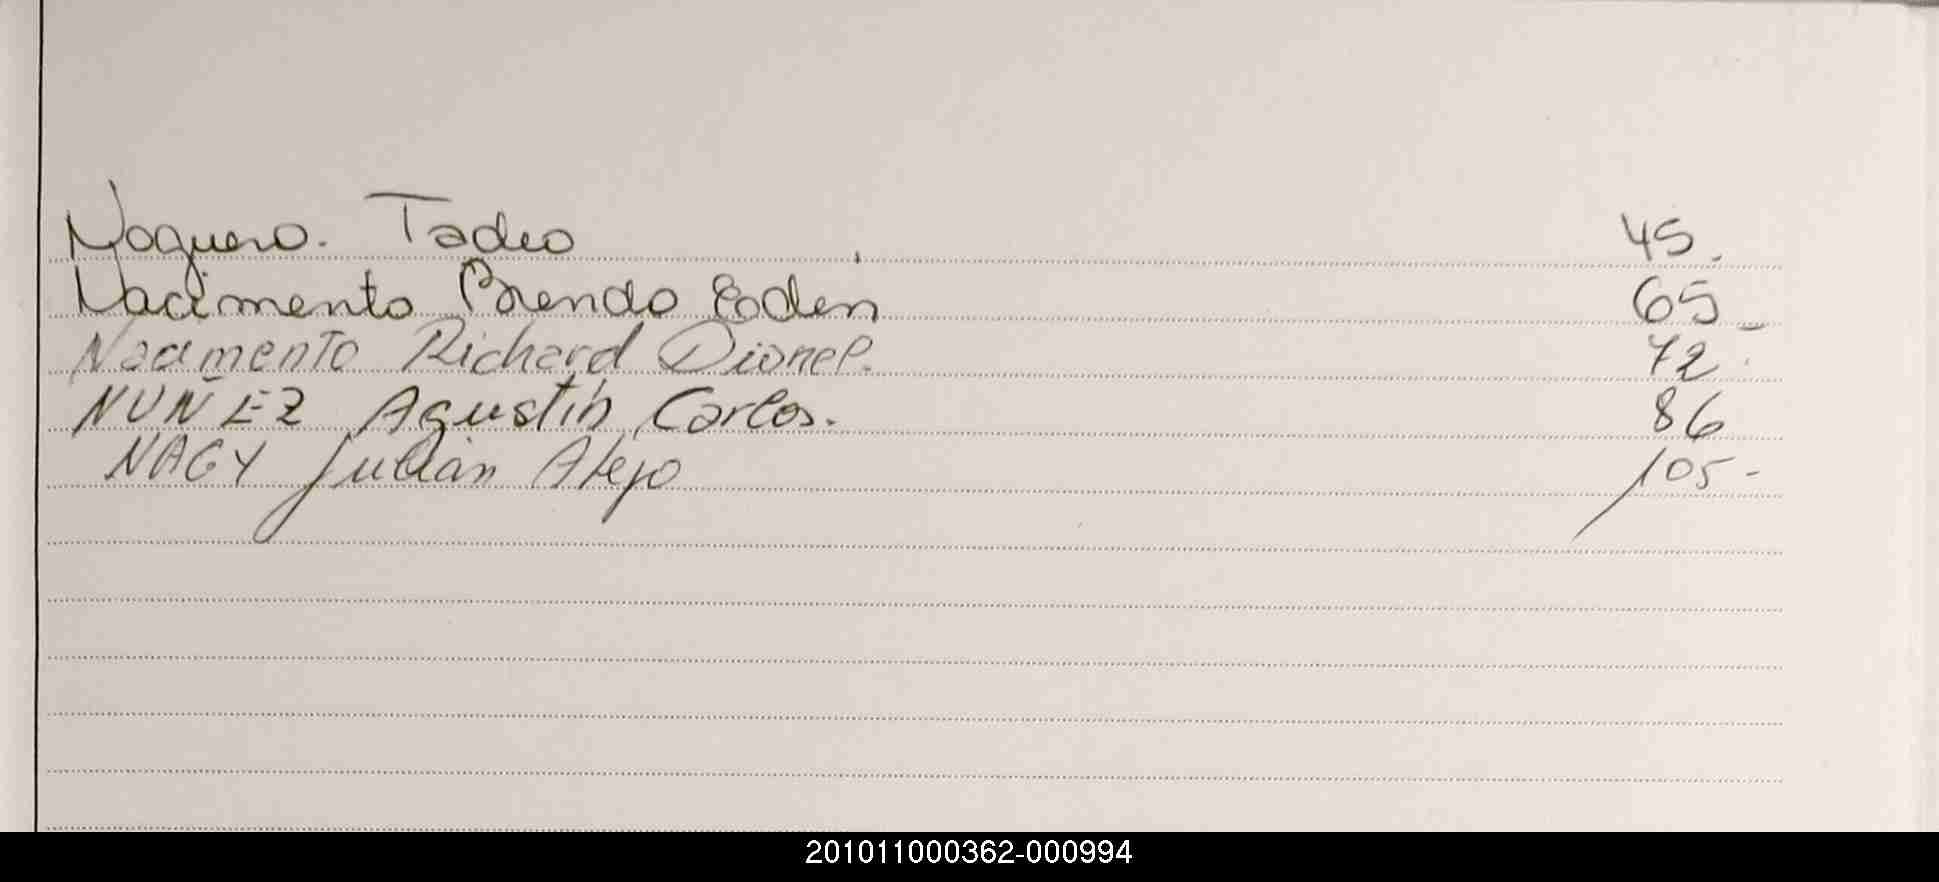 Noguera. Tadeo 45.
Nacimento Brenda 65
Nacimento Richard Dionel. 72
NUÑEZ Agustín Carlos. 86
NAGY Julián Alejo 105-
201011000362-000994